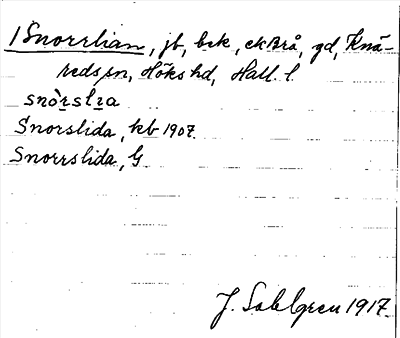 1 Snorrlian, jb, bek, ekBrå, gd, Knä-
reds sn, Höks hd, Hall. l.
snòrslıa
Snorslida, kb 1907
Snorrslida, G
J. Sahlgren 1917.